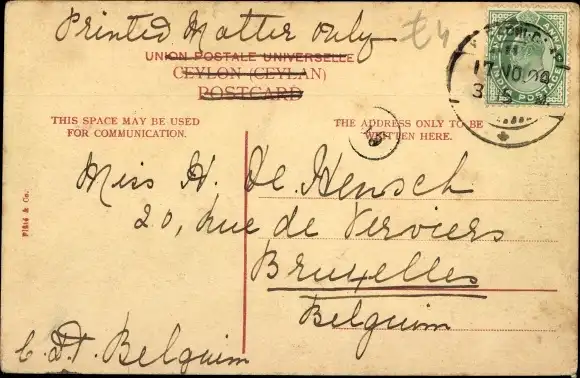 Printed Matter only
£4
UNION POSTALE UNIVERSELLE
CEYLON (CEYLAN)
POSTCARD
17 NO 06
INDIA POSTAGE
THIS SPACE MAY BE USED
FOR COMMUNICATION.
THE ADDRESS ONLY TO BE
WRITTEN HERE.
Plâté & Co.
Miss H. De Hensch
20, rue de Verviers
Bruxelles
Belguim
C. D. T. Belguim